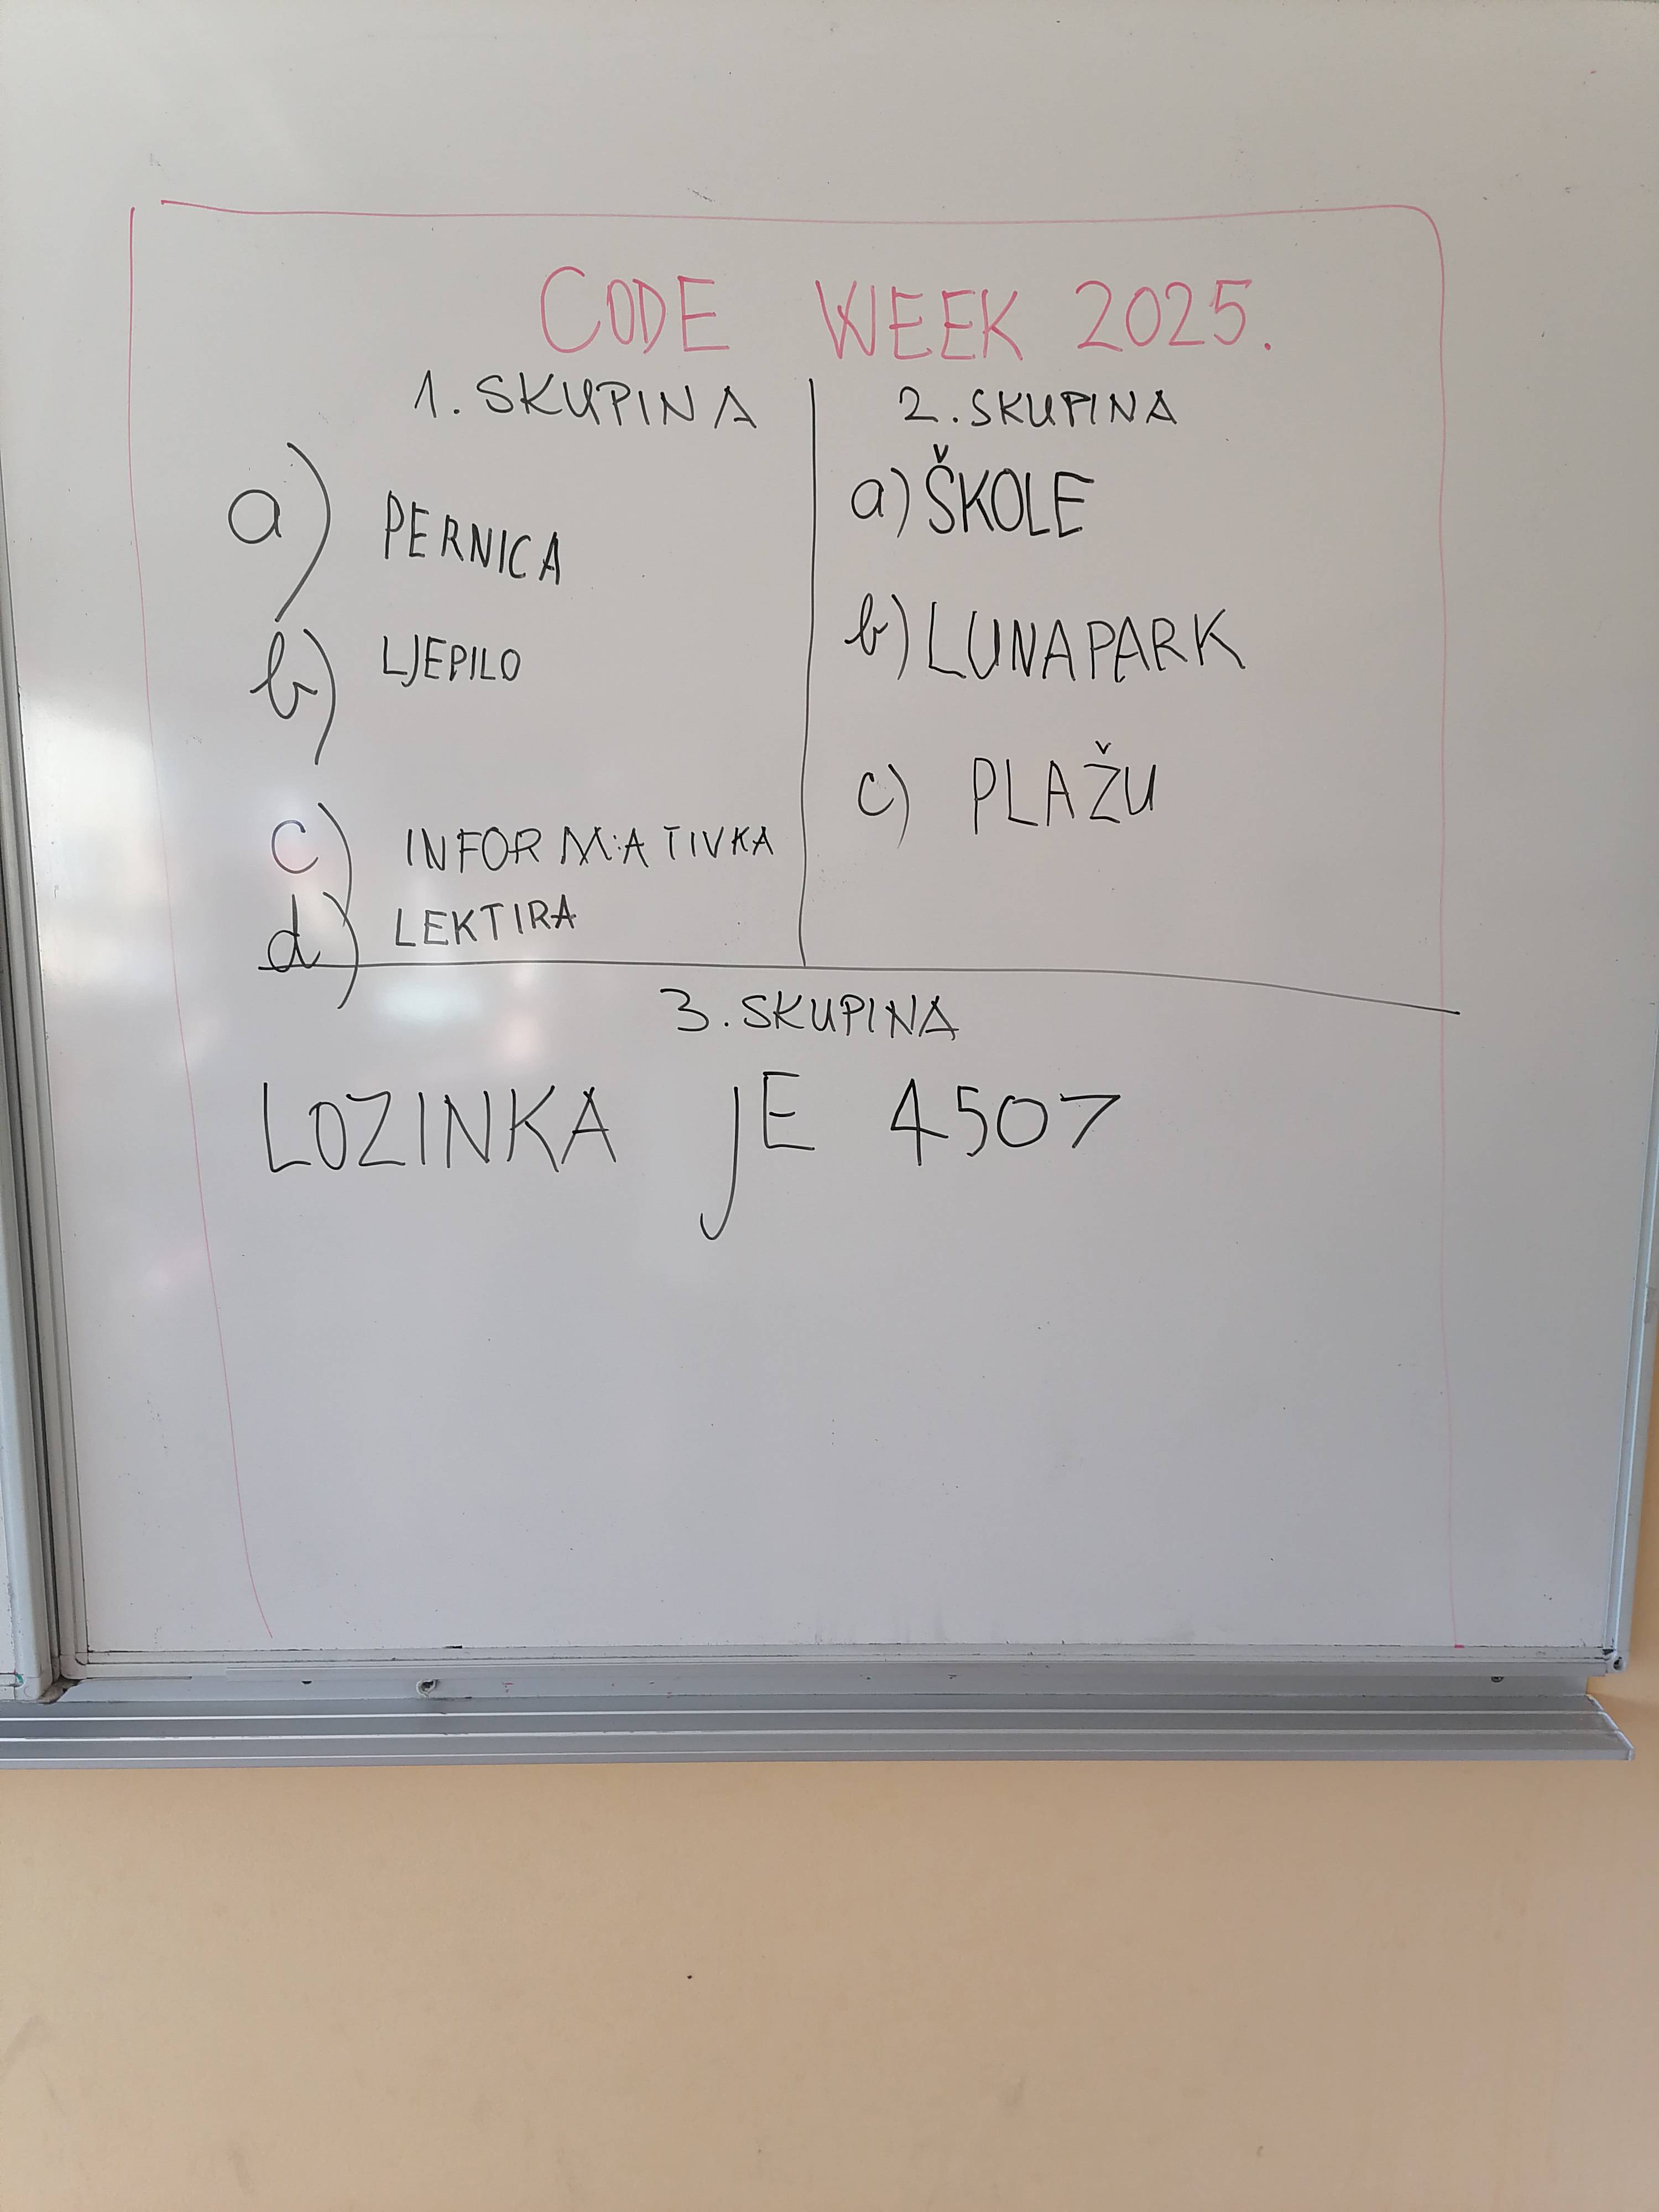 CODE WEEK 2025.
1. SKUPINA
a) PERNICA
b) LJEPILO
c) INFORMATIVKA
d) LEKTIRA
2. SKUPINA
a) ŠKOLE
b) LUNAPARK
c) PLAŽU
3. SKUPINA
LOZINKA JE 4507